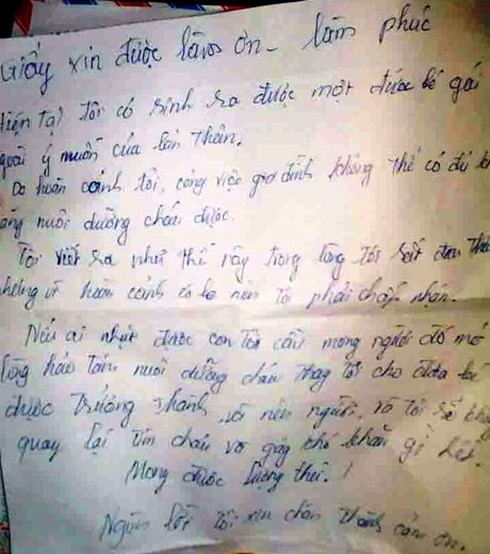 Giấy xin được làm ơn - làm phúc
Hiện tại tôi có sinh ra được một đứa bé gái
ngoài ý muốn của bản thân.
Do hoàn cảnh tôi, công việc gia đình không thể có đủ
nuôi dưỡng cháu được.
Tôi viết ra như thế này trong lòng tôi rất đau
nhưng vì hoàn cảnh nên tôi phải chấp nhận.
Nếu ai nhặt được con tôi cầu mong người đó mở
lòng hảo tâm nuôi dưỡng cháu thay tôi cho đứa bé
được trưởng thành, nên người, và tôi sẽ không
quay lại tìm cháu và gây khó khăn gì hết.
Mong được lượng thứ. !
Ngàn lời tôi xin chân thành cảm ơn.